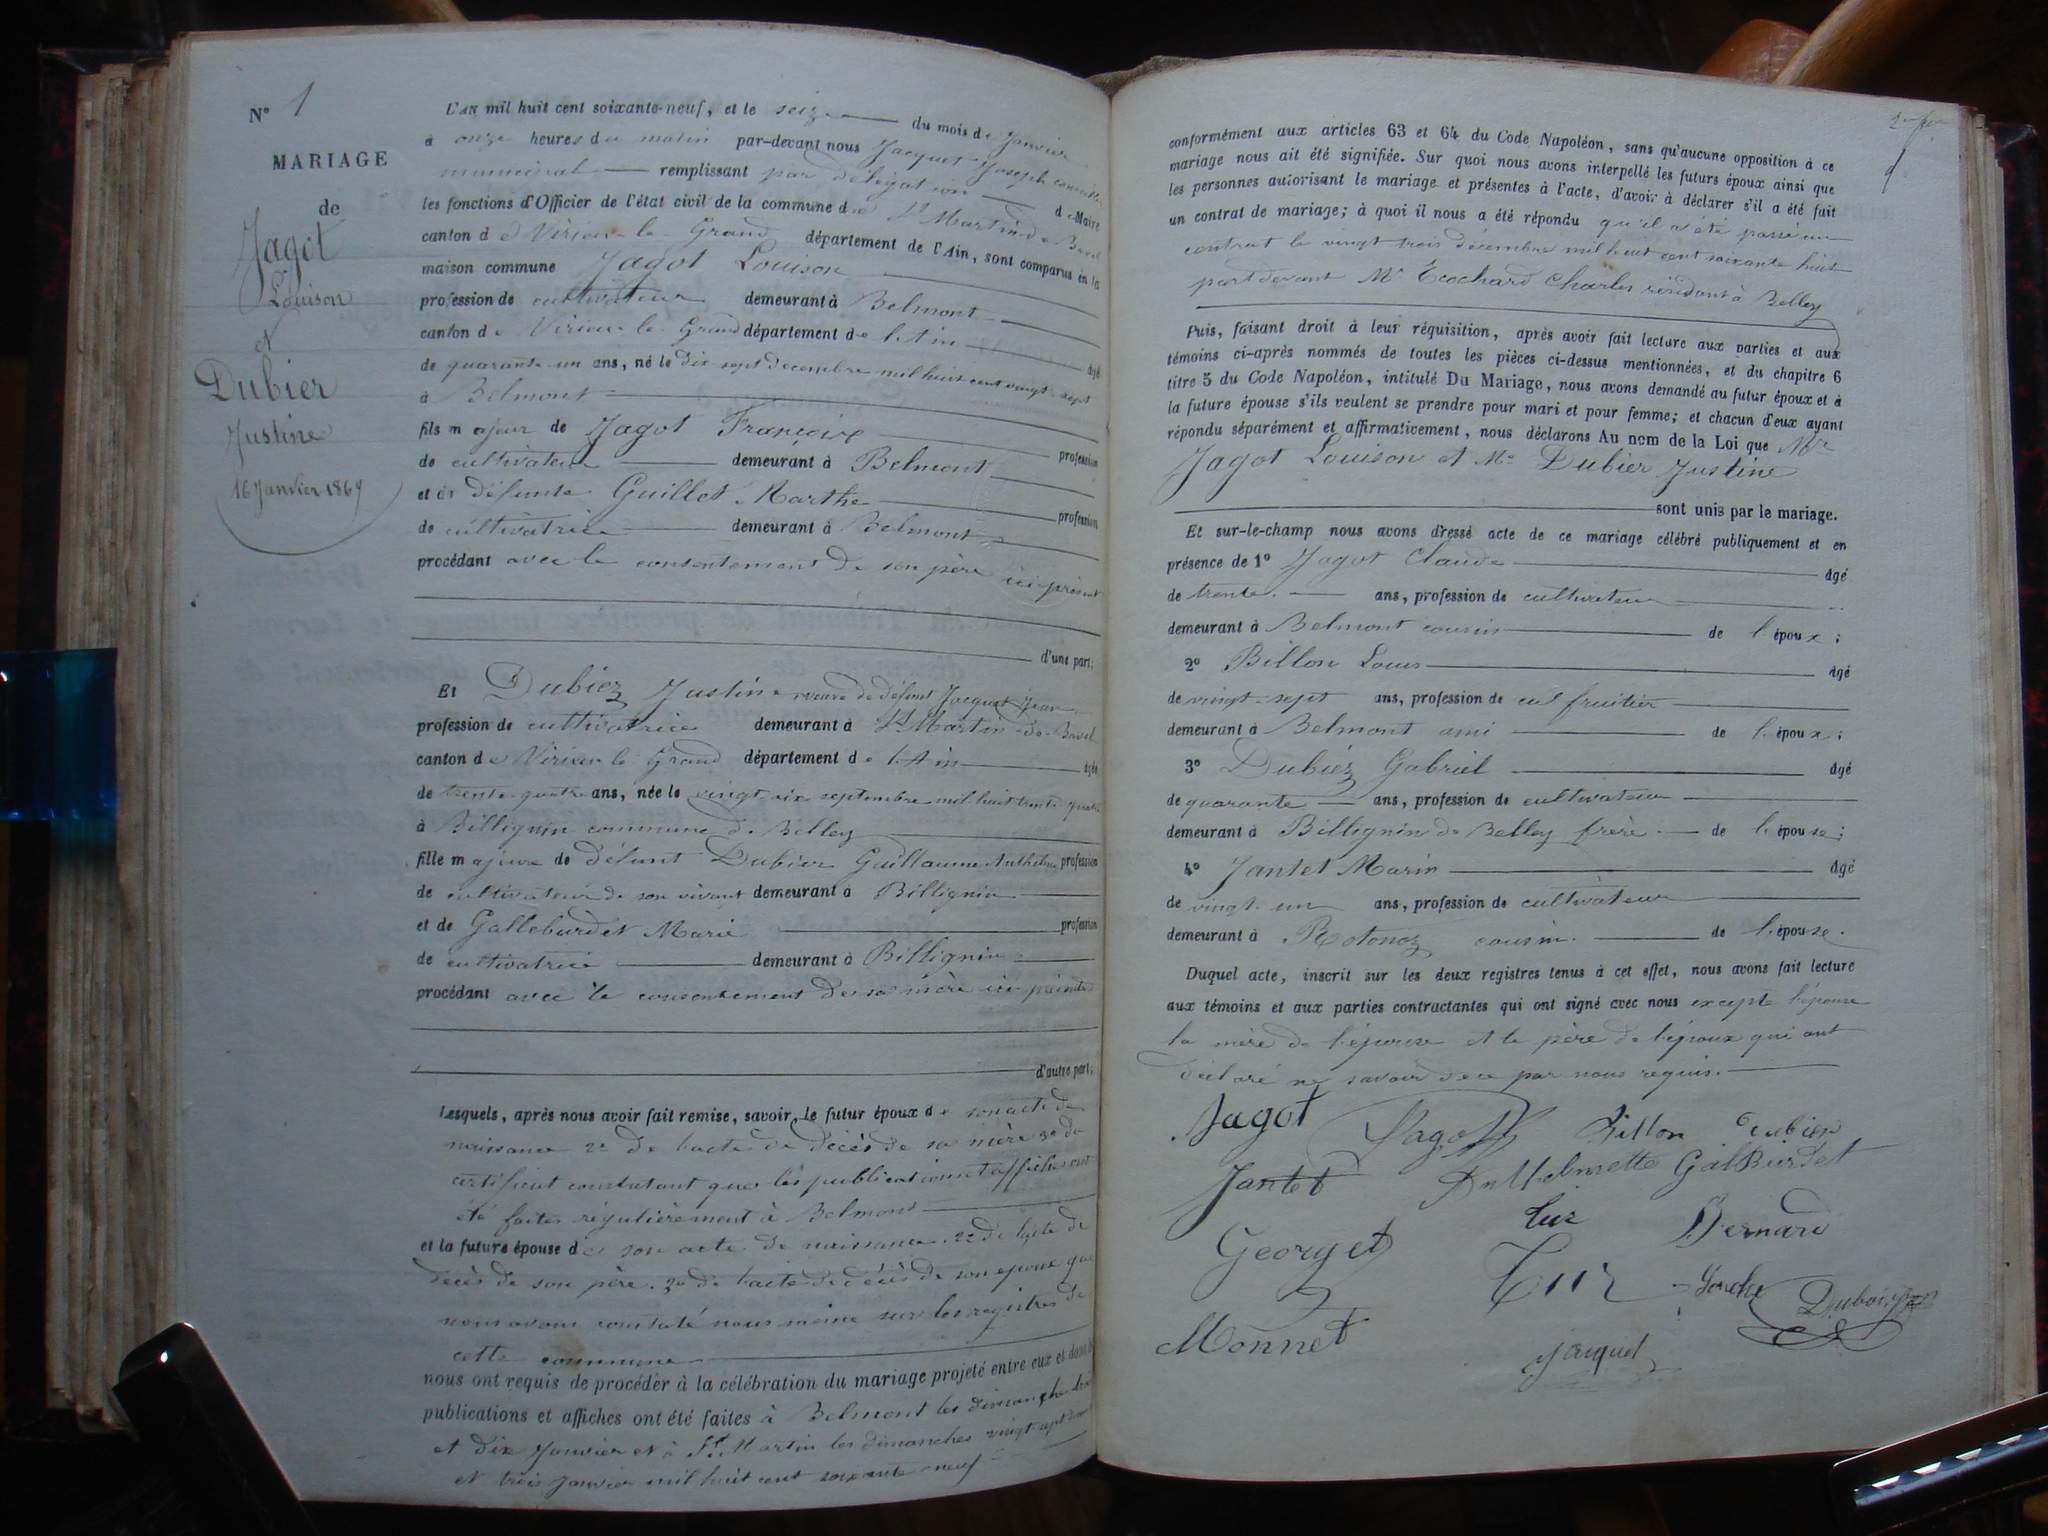 N° 1
MARIAGE
de
Jagot
Louison
et
Dubier
Justine
16 Janvier 1869
L'AN mil huit cent soixante-neuf, et le seize du mois de Janvier
à onze heures du matin par-devant nous Jacquet Joseph conseiller
municipal remplissant par délégation d Maire
les fonctions d'Officier de l'état civil de la commune de St Martin de Bavel
canton de Virieu le Grand département de l'Ain, sont comparus en la
maison commune Jagot Louison
profession de cultivateur demeurant à Belmont
canton de Virieu le Grand département de l'Ain âgé
de quarante un ans, né le dix sept decembre mil huit cent vingt sept
à Belmont
fils majeur de Jagot François profession
de cultivateur demeurant à Belmont
et de défunte Guillet Marthe profession
de cultivatrice demeurant à Belmont
procédant avec le consentement de son père ici présent
d'une part;
Et Dubiez Justine veuve de défunt Jacquet Jean
profession de cultivatrice demeurant à St Martin de Bavel
canton de Virieu le Grand département de l'Ain âgée
de trente quatre ans, née le vingt six septembre mil huit trente quatre
à Billignin commune de Belley
fille majeure de défunt Dubier Guillaume Anthelme profession
de cultivateur de son vivant demeurant à Billignin
et de Galleburdet Marie profession
de cultivatrice demeurant à Billignin
procédant avec le consentement de sa mère ici
d'autre part;
Lesquels, après nous avoir fait remise, savoir, le futur époux de son acte de
naissance 2° de l'acte de décès de sa mère 3° du
certificat constatant que les publications et affiches ont
été faites régulièrement à Belmont
et la future épouse de son acte de naissance. 2° de l'acte de
décès de son père. 3° de l'acte de décès de son epoux que
nous avons constaté nous même sur les registres de
cette commune
nous ont requis de procéder à la célébration du mariage projeté entre eux et dont les
publications et affiches ont été faites à Belmont les dimanches
et dix Janvier et à St Martin les dimanches vingt sept
et trois Janvier mil huit cent soixante neuf
conformément aux articles 63 et 64 du Code Napoléon, sans qu'aucune opposition à ce
mariage nous ait été signifiée. Sur quoi nous avons interpellé les futurs époux ainsi que
les personnes autorisant le mariage et présentes à l'acte, d'avoir à déclarer s'il a été fait
un contrat de mariage; à quoi il nous a été répondu qu'il a été passé un
contrat le vingt trois décembre mil huit cent soixante huit
part devant Me Ecochard Charles résidant à Belley
Puis, faisant droit à leur réquisition, après avoir fait lecture aux parties et aux
témoins ci-après nommés de toutes les pièces ci-dessus mentionnées, et du chapitre 6
titre 5 du Code Napoléon, intitulé Du Mariage, nous avons demandé au futur époux et à
la future épouse s'ils veulent se prendre pour mari et pour femme; et chacun d'eux ayant
répondu séparément et affirmativement, nous déclarons Au nom de la Loi que Mr
Jagot Louison et Me Dubier Justine
sont unis par le mariage.
Et sur-le-champ nous avons dressé acte de ce mariage célébré publiquement et en
présence de 1° Jagot Claude âgé
de trente ans, profession de cultivateur
demeurant à Belmont cousin de l'époux;
2° Billon Louis âgé
de vingt-sept ans, profession de fruitier
demeurant à Belmont ami de l'époux;
3° Dubiez Gabriel âgé
de quarante ans, profession de cultivateur
demeurant à Billignin de Belley frère de l'épouse;
4° Jantet Marin âgé
de vingt un ans, profession de cultivateur
demeurant à Rotonoz cousin de l'épouse.
Duquel acte, inscrit sur les deux registres tenus à cet effet, nous avons fait lecture
aux témoins et aux parties contractantes qui ont signé avec nous excepte l'épouse
la mère de l'épouse et le père de l'époux qui ont
déclaré ne savoir de ce par nous requis.
Jagot Jagot Billon Dubier
Jantet Anthelmette Galburdet
Luc Bernard
Georget
Monnet
Jacquet